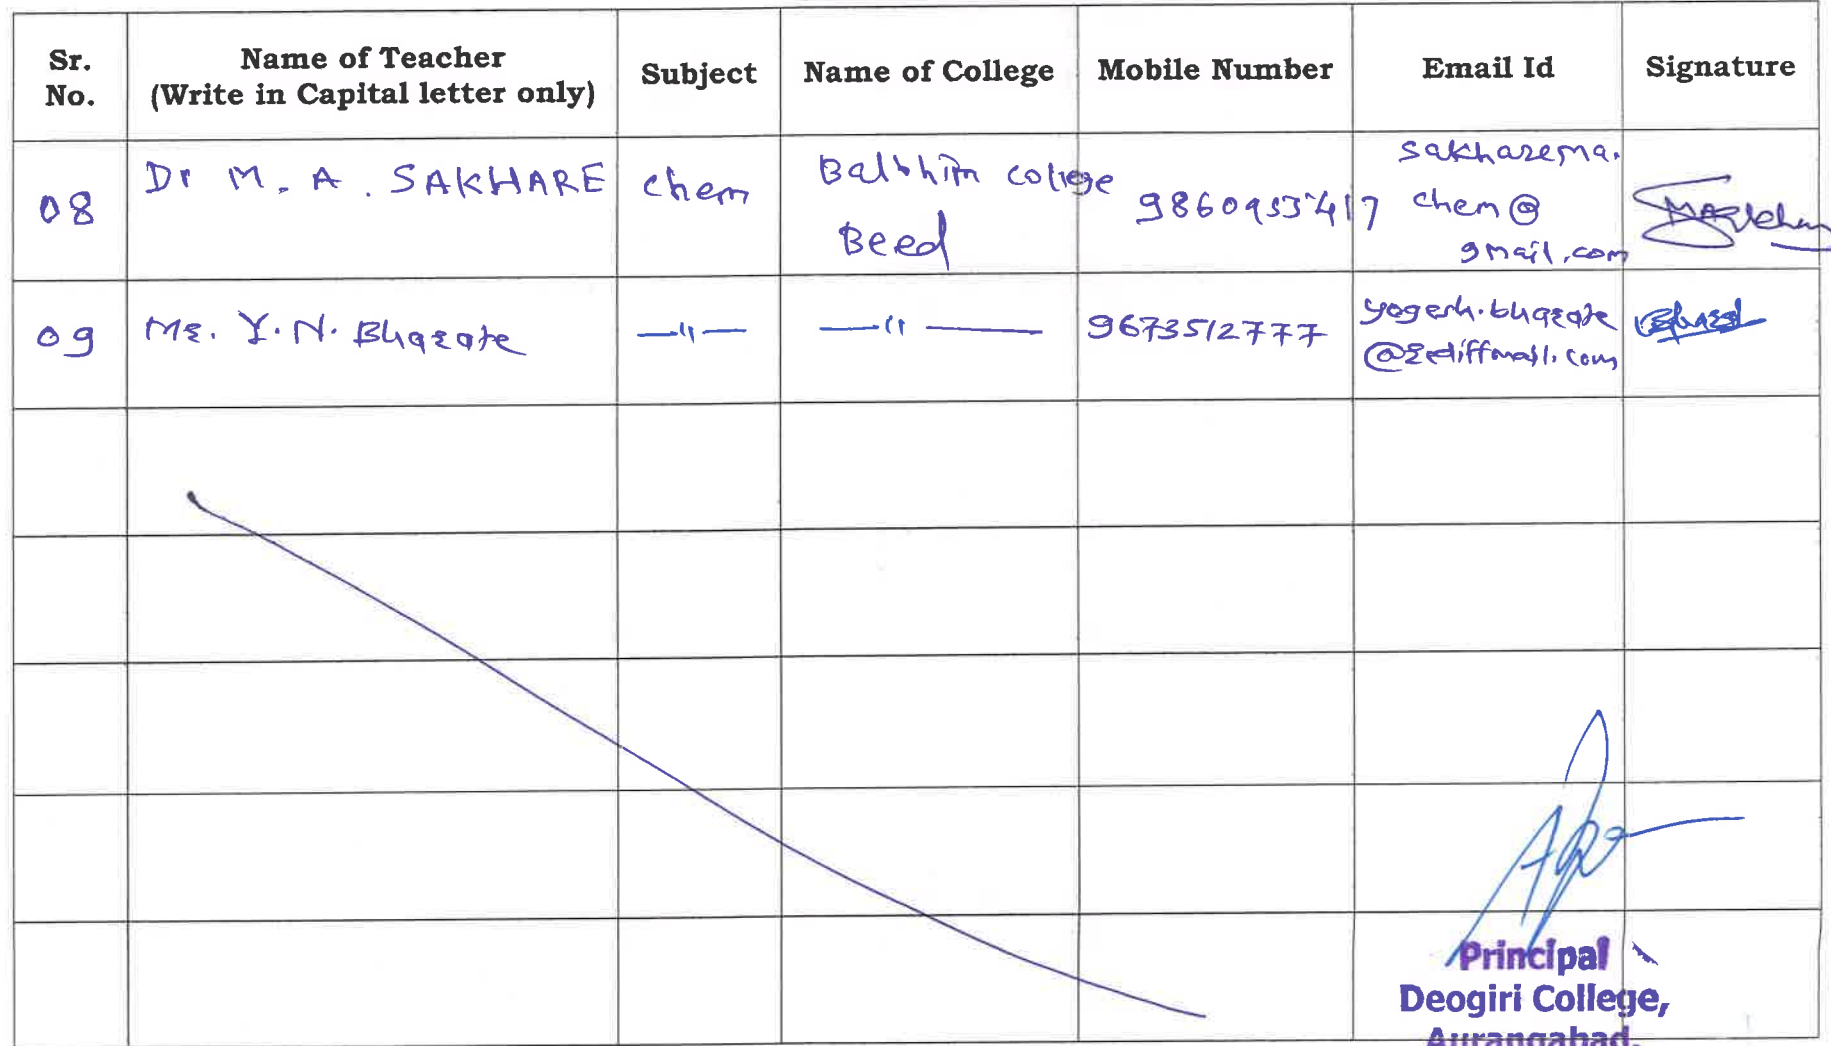 Sr. No.
Name of Teacher
(Write in Capital letter only)
Subject
Name of College
Mobile Number
Email Id
Signature
08
Dr M. A. SAKHARE
chem
Balbhim college
Beed
9860953417
sakharema.
chem@
gmail.com
09
Mr. Y. N. Bharate
—"—
—"—
9673512777
yogesh.bharate
@rediffmail.com
Principal
Deogiri College,
Aurangabad.